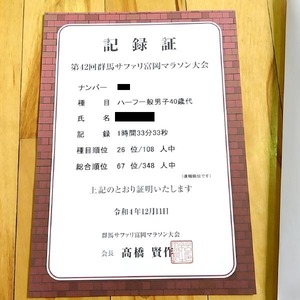 記録証
第42回群馬サファリ富岡マラソン大会
ナンバー
種目 ハーフ一般男子40歳代
氏名
記録 1時間33分33秒
種目順位 26 位/108 人中
総合順位 67 位/348 人中
上記のとおり証明いたします
令和4年12月11日
群馬サファリ富岡マラソン大会
会長 高橋 賢作